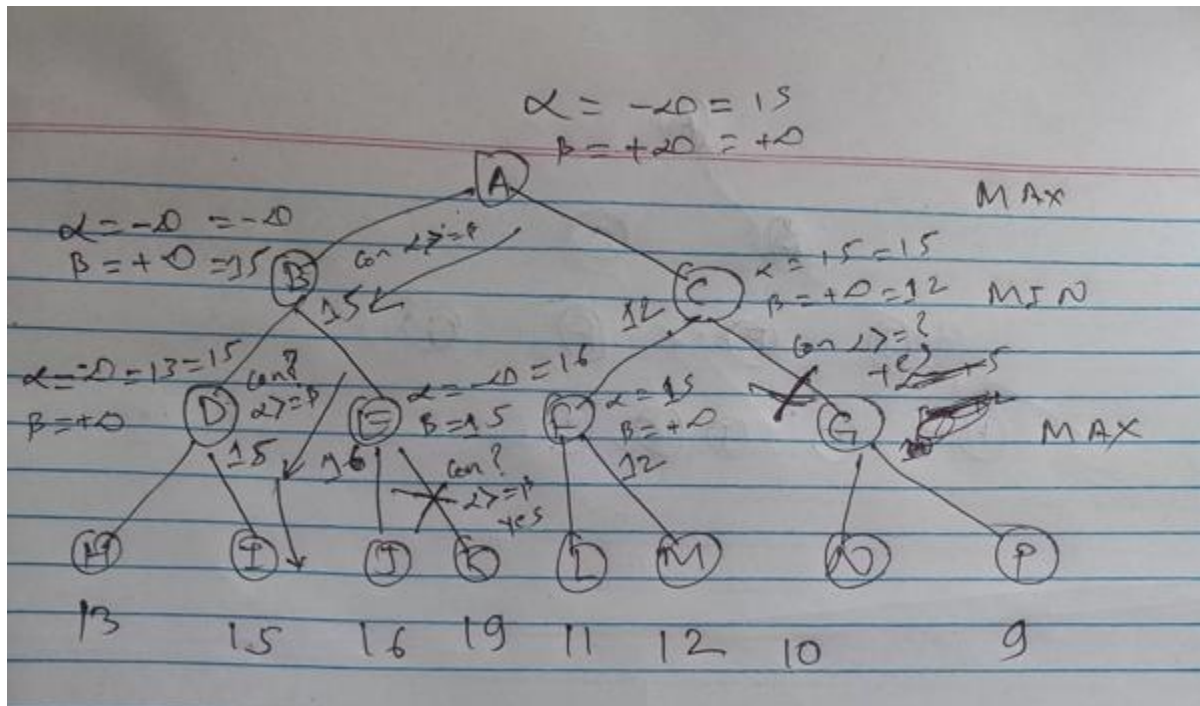 α = -∞ = 15
β = +∞ = +∞
A
MAX
α = -∞ = -∞
β = +∞ = 15
B
con α >= β
15
C
α = 15 = 15
β = +∞ = 12
MIN
12
con α >= ?
yes
α = -∞ = 13 = 15
β = +∞
D
con?
α >= β
15
E
α = -∞ = 16
β = 15
16
con?
α >= β
yes
F
α = 15
β = +∞
12
G
MAX
H
I
J
K
L
M
N
P
13
15
16
19
11
12
10
9